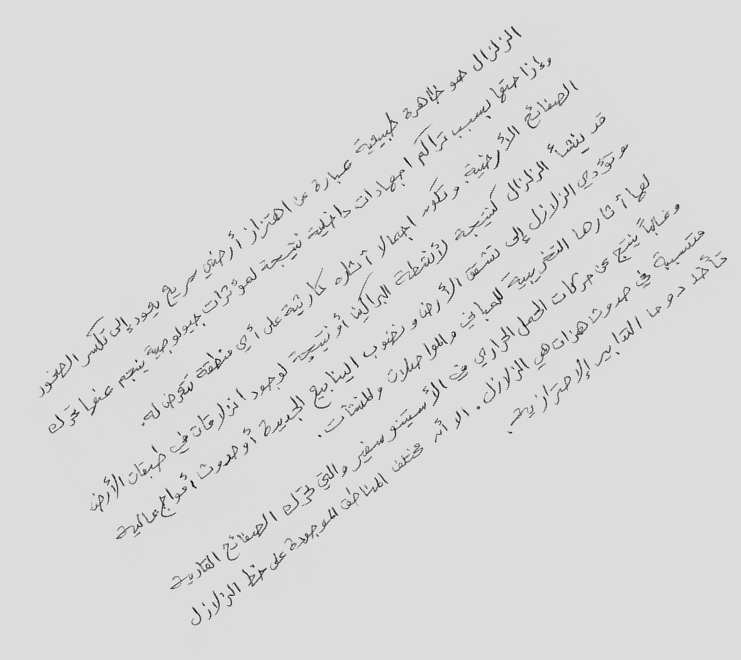 الزلزال هو ظاهرة طبيعية عبارة عن اهتزاز أرضي سريع يعود إلى تكسر الصخور
وإزاحتها بسبب تراكم اجهادات داخلية نتيجة لمؤثرات جيولوجية ينجم عنها تحرك
الصفائح الأرضية. وتكون اجمالا آثاره كارثية على أي منطقة تتعرض له.
قد ينشأ الزلزال كنتيجة لأنشطة البراكين أو نتيجة لوجود انزلاقات في طبقات الأرض
وتؤدي الزلازل إلى تشقق الأرض ونضوب الينابيع الجديدة أو حدوث أمواج عالية
لها آثارها التخريبية للمباني والمواصلات والمنشآت.
وغالباً ينتج عن حركات الحمل الحراري في الأسينوسفير والتي تحرك الصفائح القارية
متسببة في حدوث هزات هي الزلازل. الا أنه مختلف المناطق الموجودة على خط الزلازل
تأخذ دوما التدابير الإحترازية.